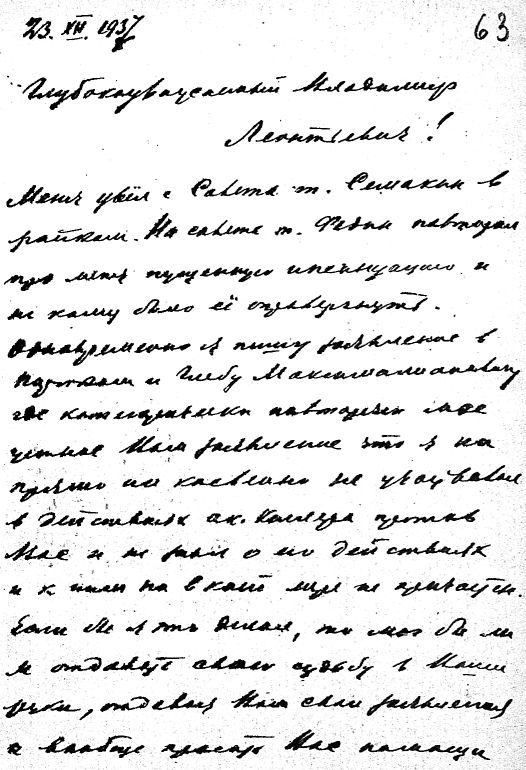 23.XII.1937 63
Глубокоуважаемый Владимир
Леонтьевич!
Меня увёл с Совета т. Семакин в
райком. На совете т. Федин повторил
про меня пущенную инсинуацию и
не кому было её опровергнуть.
Одновременно я пишу заявление в
партком и Глебу Максимилиановичу
где категорически повторяю мое
устное Вам заявление что я ни
прямо ни косвенно не участвовал
в действиях ак. Коллера против
Вас и не знал о его действиях
и к ним ни в коей мере не причастен.
Если бы я это делал, то мог бы ли
я отдавать свою судьбу в Ваши
руки, отдавая Вам свои заявления
и вообще просить Вас помощи